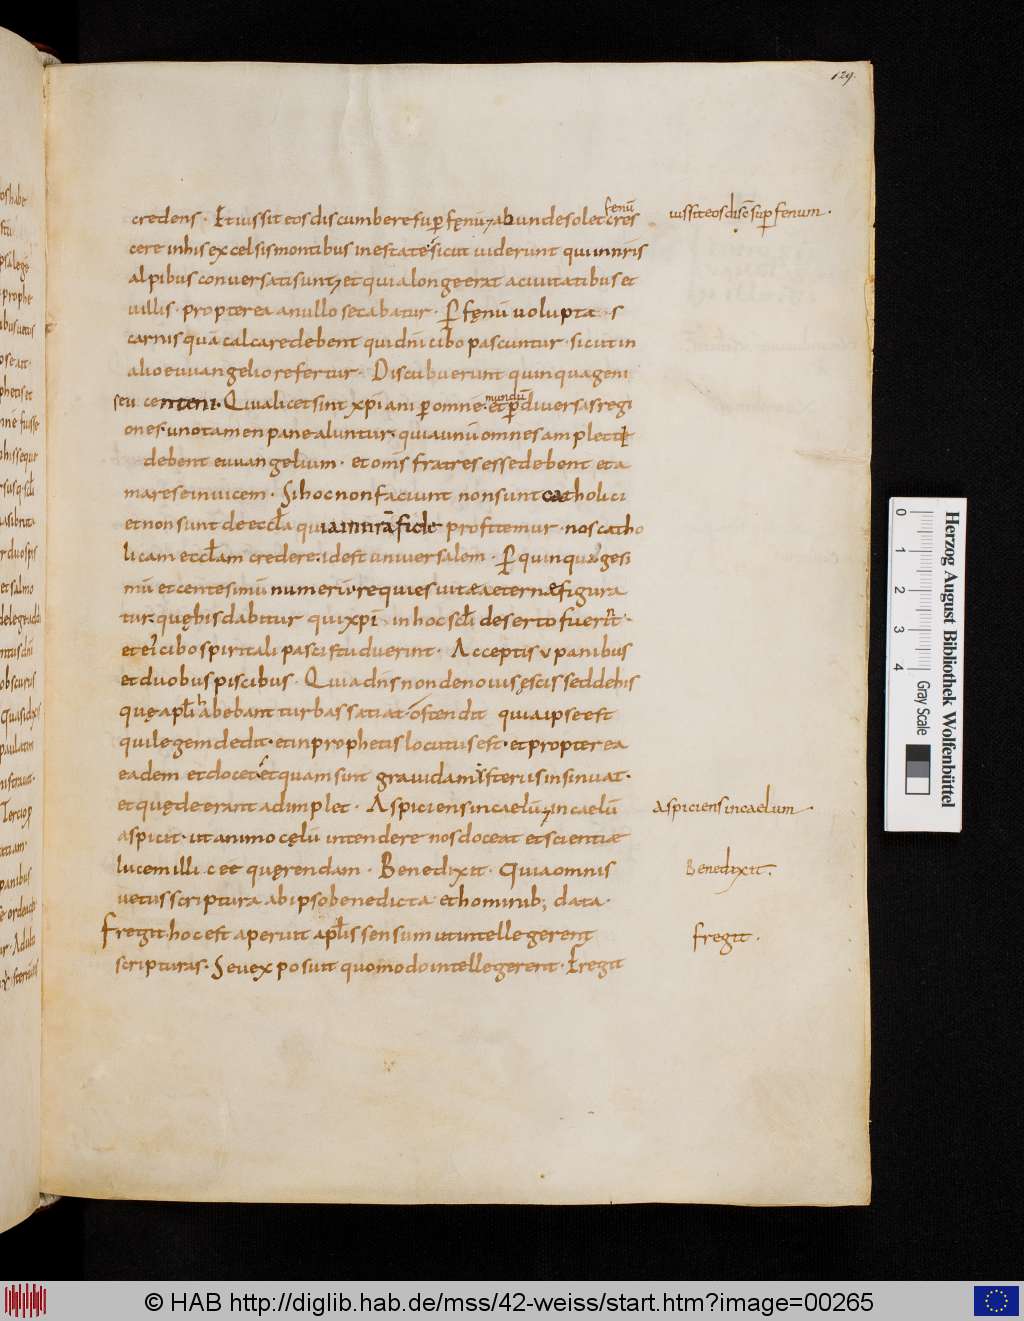 129.
credens. Et iussit eos discumbere sup fęnū; abunde solet fenū cres
iussit eos disc̄ sup fenum.
cere in his excelsis montibus in estate sicut uiderunt qui in n̄ris
alpibus conuersati sunt; et qui a longe erat a ciuitatibus et
uillis. propterea a nullo secabatur. P fęnū uolupta s
carnis quā calcare debent qui dn̄i cibo pascuntur. sicut in
alio euuangelio refertur. Discubuerunt quinquageni
seu centeni. Qui a licet sint xp̄iani p omnē mundū et p diuersas regi
ones. uno tamen pane aluntur. quia unū omnes amplecti
debent euuangelium. et om̄s fratres esse debent et a
mare se inuicem. Si hoc non faciunt non sunt catholici
et non sunt de eccl̄a qui a in n̄ra fide profitemur. nos catho
licam eccl̄am credere. id est uniuersalem. P quinquages
imū et centesimū numerū. requies uitæ æternæ figura
tur. quę his dabitur qui xp̄i in hoc scl̄i deserto fuer̄
et ei cibo spiritali pasci studuerint. Acceptis v panibus
et duobus piscibus. Quia dn̄s non de nouis ęscis sed de his
quę apl̄i habebant turbas satiat ostendit quia ipse est
qui legem dedit. et in prophetis locutus est. et propterea
eadem et docet et quam sint grauida misteriis insinuat.
et quę deerant adimplet. Aspiciens in caelū; in caelū
aspiciens in caelum.
aspicit. ut animo cęlū intendere nos doceat et scientiæ
lucem illic ee quęrendam. Benedixit. Quia omnis
Benedixit.
uetus scriptura ab ipso benedicta et hominib; data.
Fregit hoc est aperuit apl̄is sensum ut intellegerent
fregit.
scripturas. Seu exposuit quomodo intellegerent. Fregit
Herzog August Bibliothek Wolfenbüttel
0 1 2 3 4
Gray Scale
© HAB http://diglib.hab.de/mss/42-weiss/start.htm?image=00265